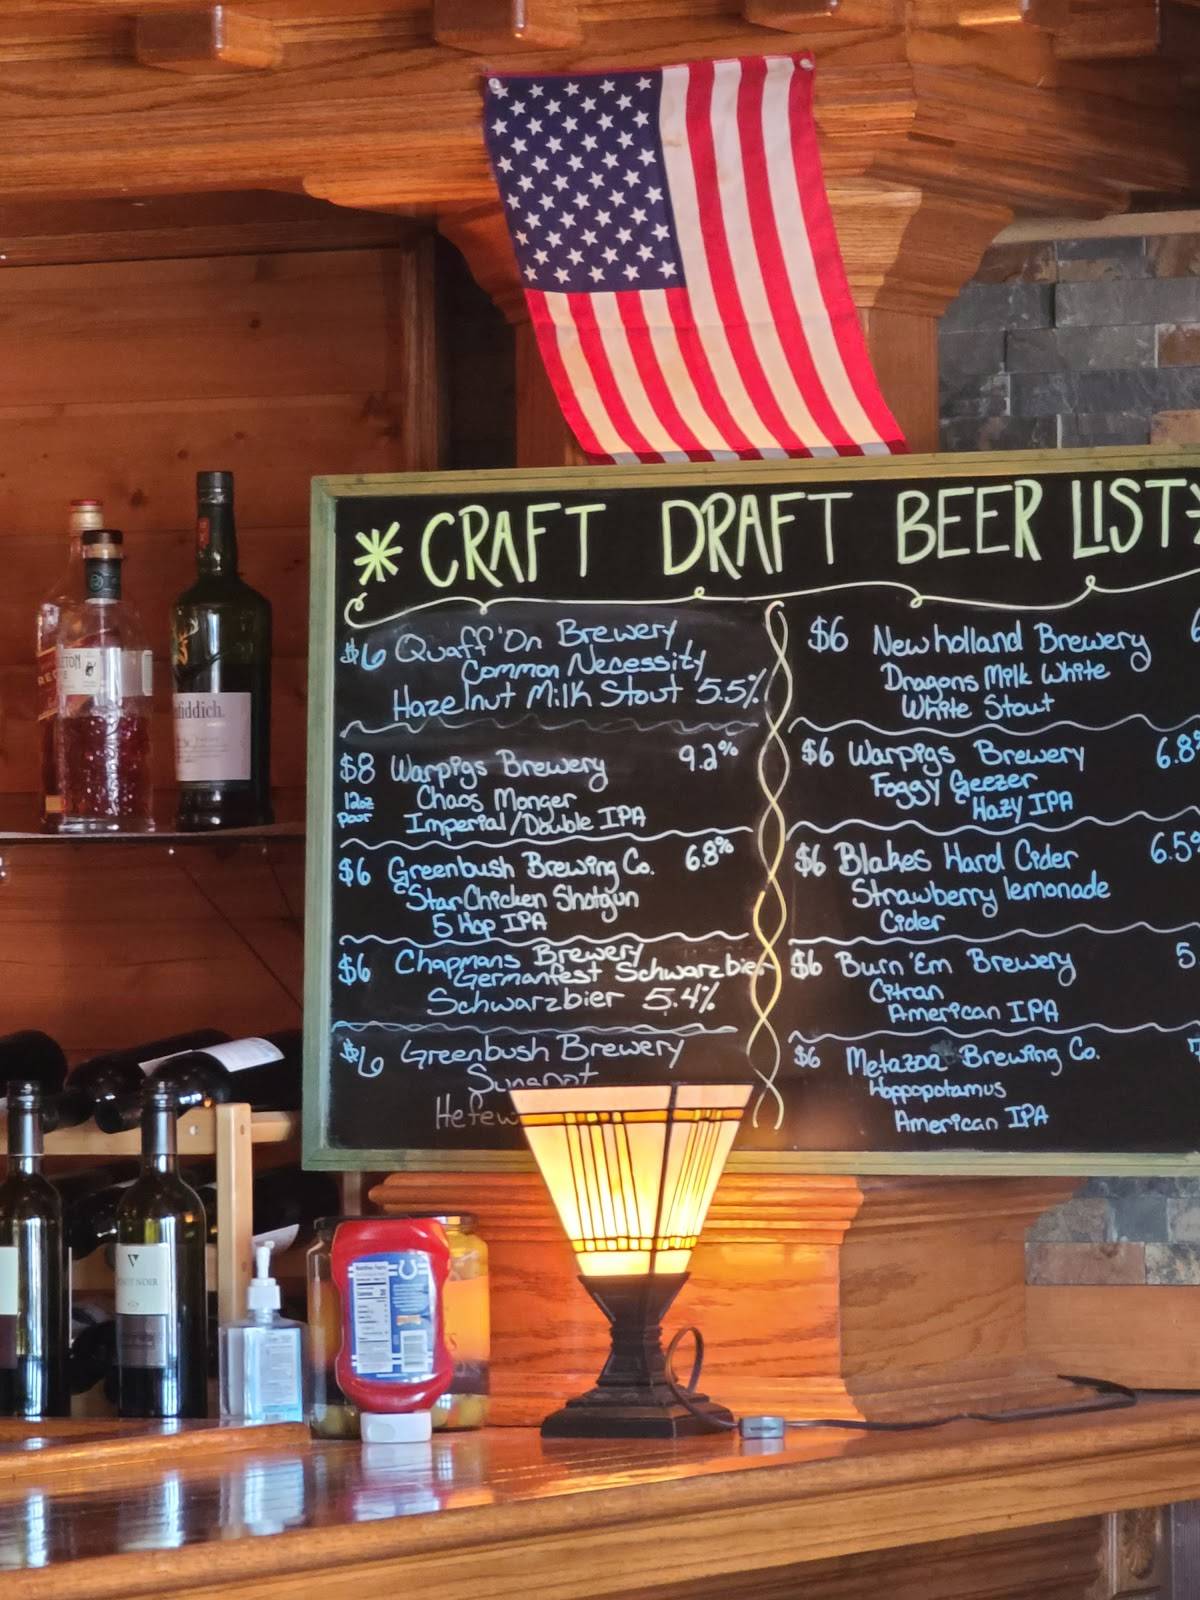 * CRAFT DRAFT BEER LIST
$6 Quaff'On Brewery
Common Necessity
Hazelnut Milk Stout 5.5%
$8 Warpigs Brewery 9.2%
12oz pour
Chaos Monger
Imperial/Double IPA
$6 Greenbush Brewing Co. 6.8%
Star Chicken Shotgun
5 Hop IPA
$6 Chapmans Brewery
Germanfest Schwarzbier
Schwarzbier 5.4%
$6 Greenbush Brewery
$6 Newholland Brewery
Dragons Milk White
White Stout
$6 Warpigs Brewery 6.8%
Foggy Geezer
Hazy IPA
$6 Blakes Hard Cider 6.5%
Strawberry lemonade
Cider
$6 Burn'Em Brewery 5
Citran
American IPA
$6 Metazoa Brewing Co. 7
Hoppopotamus
American IPA
fiddich.
PINOT NOIR
Nutrition Facts